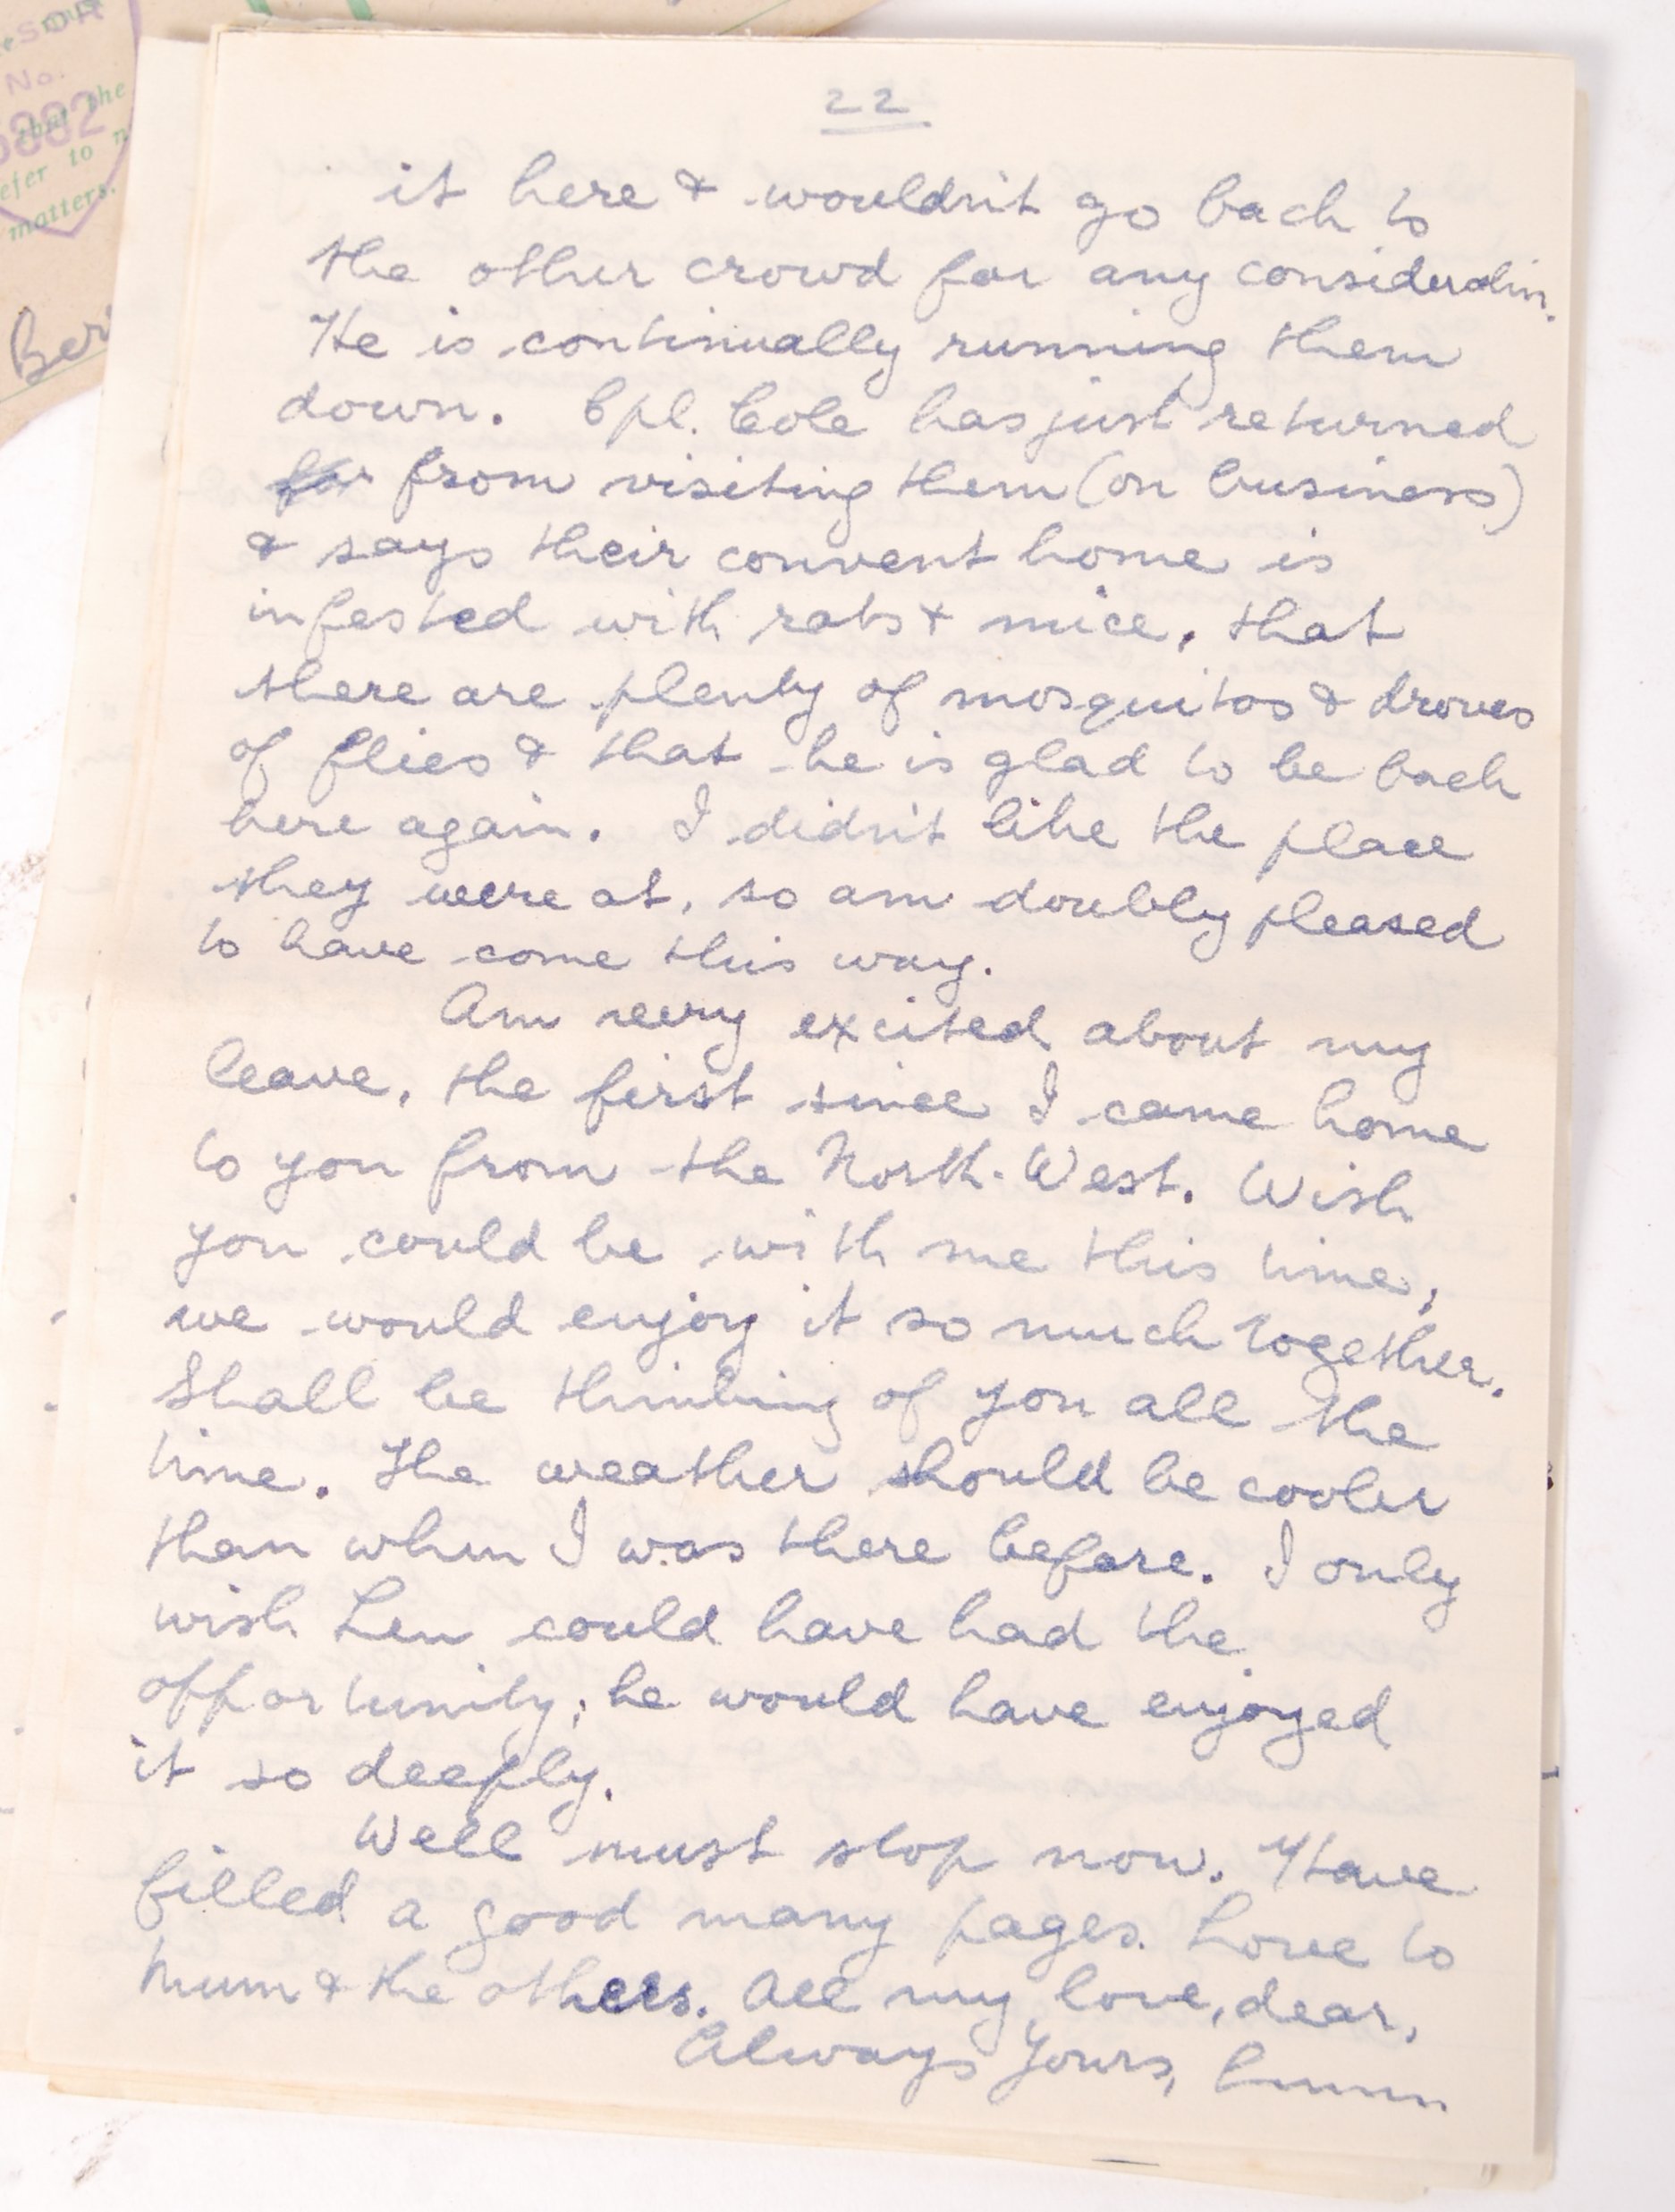 SOR
No.
that the
refer to
matters.
Ber
22
it here & wouldn't go back to
the other crowd for any consideration.
He is continually running them
down. Cpl. Cole has just returned
from visiting them (on business)
& says their convent home is
infested with rats & mice, that
there are plenty of mosquitos & droves
of flies & that he is glad to be back
here again. I didn't like the place
they were at, so am doubly pleased
to have come this way.
Am very excited about my
leave, the first since I came home
to you from the North-West. Wish
you could be with me this time,
we would enjoy it so much together.
Shall be thinking of you all the
time. The weather should be cooler
than when I was there before. I only
wish Len could have had the
opportunity, he would have enjoyed
it so deeply.
Well must stop now. Have
filled a good many pages. Love to
Mum & the others. All my love, dear,
Always Yours,